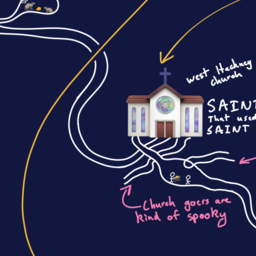 west Hackney
church
SAINT
That used
SAINT
Church goers are
kind of spooky